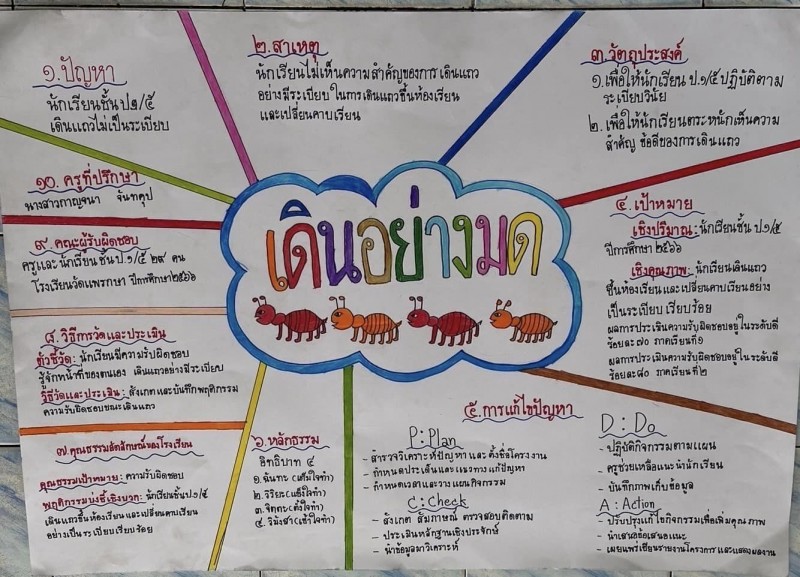 เดินอย่างมด
๑.ปัญหา
นักเรียนชั้น ป.๑/๕
เดินแถวไม่เป็นระเบียบ
๒.สาเหตุ
นักเรียนไม่เห็นความสำคัญของการเดินแถว
อย่างมีระเบียบ ในการเดินแถวขึ้นห้องเรียน
และเปลี่ยนคาบเรียน
๓.วัตถุประสงค์
๑.เพื่อให้นักเรียน ป.๑/๕ ปฏิบัติตาม
ระเบียบวินัย
๒.เพื่อให้นักเรียนตระหนักเห็นความ
สำคัญ ข้อดีของการเดินแถว
๔.เป้าหมาย
เชิงปริมาณ: นักเรียนชั้น ป.๑/๕
ปีการศึกษา ๒๕๖๖
เชิงคุณภาพ: นักเรียนเดินแถว
ขึ้นห้องเรียน และเปลี่ยนคาบเรียนอย่าง
เป็นระเบียบ เรียบร้อย
ผลการประเมินความรับผิดชอบอยู่ในระดับดี
ร้อยละ ๗๐ ภาคเรียนที่๑
ผลการประเมินความรับผิดชอบอยู่ในระดับดี
ร้อยละ ๘๐ ภาคเรียนที่๒
๕.การแก้ไขปัญหา
P: Plan
- สำรวจวิเคราะห์ปัญหา และ ตั้งชื่อโครงงาน
- กำหนดประเด็นและแนวทางแก้ปัญหา
- กำหนดเวลาและวางแผนกิจกรรม
C: Check
- สังเกต สัมภาษณ์ ตรวจสอบติดตาม
- ประเมินหลักฐานเชิงประจักษ์
- นำข้อมูลมาวิเคราะห์
D: Do
- ปฏิบัติกิจกรรมตามแผน
- ครูช่วยเหลือแนะนำนักเรียน
- บันทึกภาพเก็บข้อมูล
A: Action
- ปรับปรุงแก้ไขกิจกรรมเพื่อเพิ่มคุณภาพ
- นำเสนอข้อเสนอแนะ
- เผยแพร่เขียนรายงานโครงการ และแสดงผลงาน
๖.หลักธรรม
อิทธิบาท ๔
๑.ฉันทะ (เต็มใจทำ)
๒.วิริยะ (แข็งใจทำ)
๓.จิตตะ (ตั้งใจทำ)
๔.วิมังสา (เข้าใจทำ)
๗.คุณธรรมอัตลักษณ์ของโรงเรียน
คุณธรรมเป้าหมาย: ความรับผิดชอบ
พฤติกรรมบ่งชี้เชิงบวก: นักเรียนชั้นป.๑/๕
เดินแถวขึ้นห้องเรียน และเปลี่ยนคาบเรียน
อย่างเป็นระเบียบเรียบร้อย
๘.วิธีการวัดและประเมิน
ตัวชี้วัด: นักเรียนมีความรับผิดชอบ
รู้จักหน้าที่ของตนเอง เดินแถวอย่างมีระเบียบ
วิธีวัดและประเมิน: สังเกตและบันทึกพฤติกรรม
ความรับผิดชอบขณะเดินแถว
๙.คณะผู้รับผิดชอบ
ครูและนักเรียน ชั้นป.๑/๕ ๒๙ คน
โรงเรียนวัดแพรกษา ปีการศึกษา๒๕๖๖
๑๐.ครูที่ปรึกษา
นางสาวกาญจนา จันทคุป